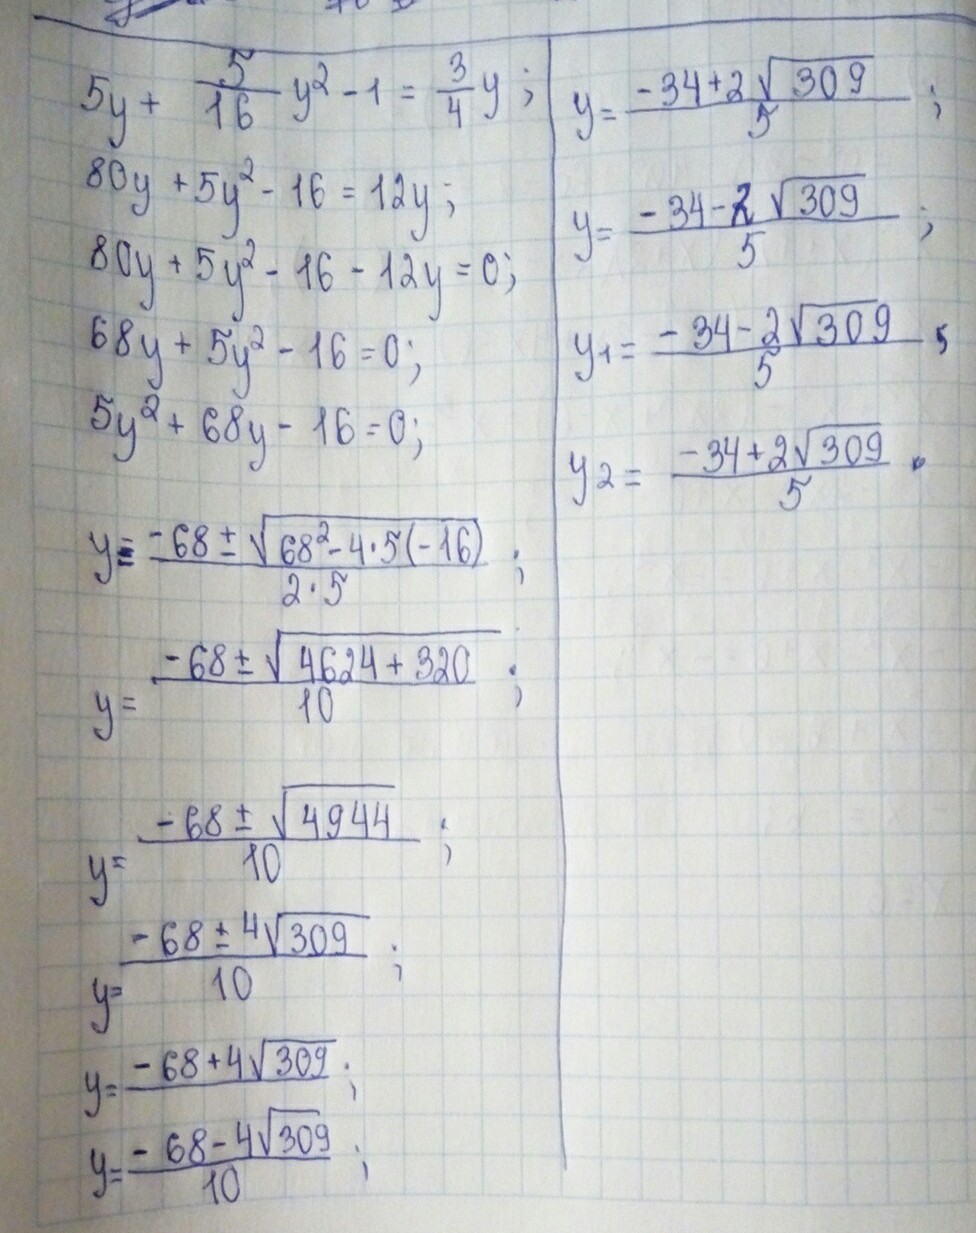 5y + 5/16 y² - 1 = 3/4 y;
80y + 5y² - 16 = 12y;
80y + 5y² - 16 - 12y = 0;
68y + 5y² - 16 = 0;
5y² + 68y - 16 = 0;
y = (-68 ± √(68² - 4·5(-16)))/(2·5);
y = (-68 ± √(4624 + 320))/10;
y = (-68 ± √4944)/10;
y = (-68 ± 4√309)/10;
y = -68 + 4√309;
y = (-68 - 4√309)/10;
y = (-34 + 2√309)/5;
y = (-34 - 2√309)/5;
y₁ = (-34 - 2√309)/5,
y₂ = (-34 + 2√309)/5.